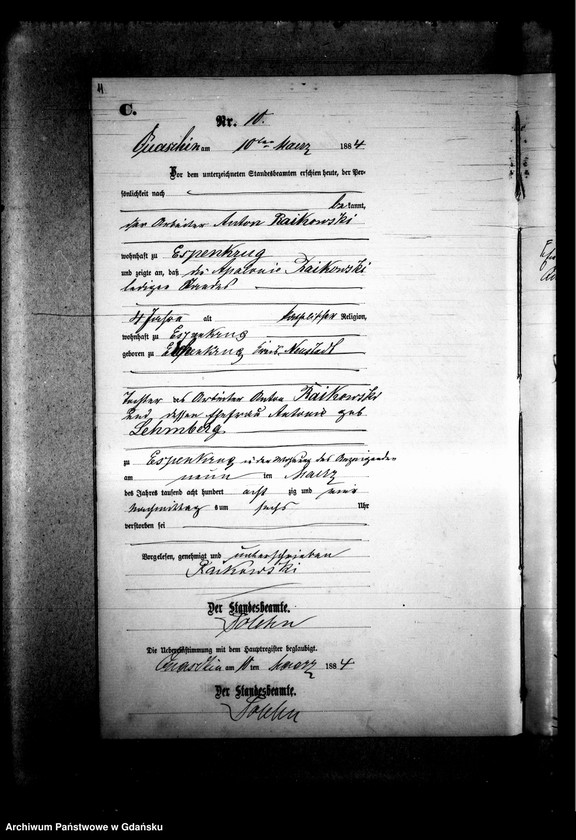 11
C.
Nr. 10.
Quaschin am 10ten Maerz 1884
Vor dem unterzeichneten Standesbeamten erschien heute, der Per-
sönlichkeit nach
bekannt,
der Arbeiter Anton Raikowski
wohnhaft zu Espenkrug
und zeigte an, daß die Apolonie Raikowski
ledigen Standes
Jahre alt katholischer Religion,
wohnhaft zu Espenkrug
geboren zu Espenkrug Kreis Neustadt
Tochter des Arbeiter Anton Raikowski
und dessen Ehefrau Antonie geb
Lehmberg
zu Espenkrug in der Wohnung des Anzeigenden
am neun ten Maerz
des Jahres tausend acht hundert acht zig und vier
Nachmittag s um sechs Uhr
verstorben sei
Vorgelesen, genehmigt und unterschrieben
Raikowski
Der Standesbeamte.
Die Uebereinstimmung mit dem Hauptregister beglaubigt.
Quaschin am 10 ten Maerz 1884
Der Standesbeamte.
Archiwum Państwowe w Gdańsku